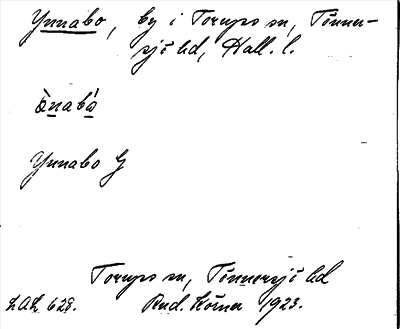 Ynnabo, by i Torups sn, Tönner-
sjö hd, Hall. l.
ò̱nabo̱
Ynnabo G
Torups sn, Tönnersjö hd
LAL 628. Rud. Körner 1923.